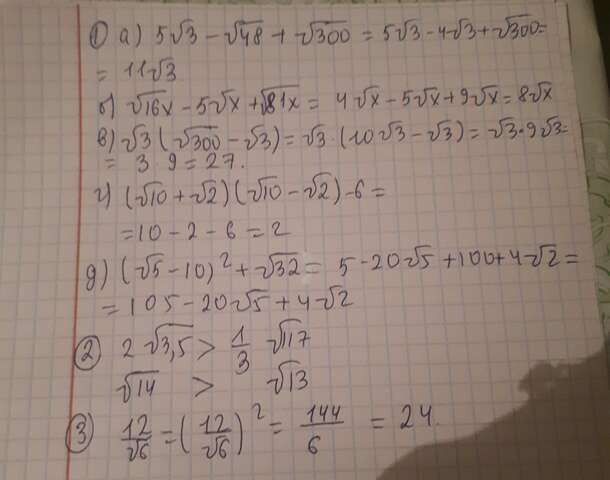 ① а) 5√3 - √48 + √300 = 5√3 - 4√3 + √300 =
= 11√3
б) √16x - 5√x + √81x = 4√x - 5√x + 9√x = 8√x
в) √3 (√300 - √3) = √3 · (10√3 - √3) = √3 · 9√3 =
= 3 · 9 = 27.
г) (√10 + √2) (√10 - √2) - 6 =
= 10 - 2 - 6 = 2
д) (√5 - 10)² + √32 = 5 - 20√5 + 100 + 4√2 =
= 105 - 20√5 + 4√2
② 2√3,5 > 1/3 √117
√14 > √13
③ 12/√6 = (12/√6)² = 144/6 = 24.